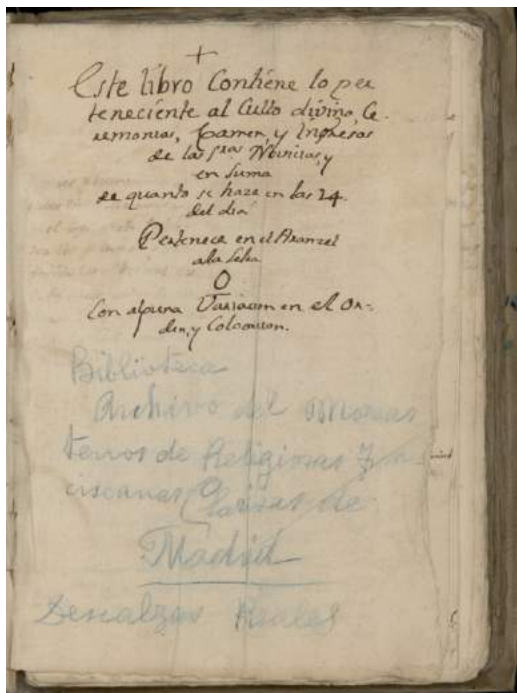 +
Este libro Contiene lo per
teneciente al Culto divino, Ce-
remonias, Examen, y Ingresos
de las Novicias, y
en suma
de quanto se haze en las 24.
del dia
Pertenece en el Aranzel
a la Letra
O
Con alguna Variacion en el Or-
den, y Colocacion.
Biblioteca
Archivo del Monas
terios de Religiosas Fran-
ciscanas Clarisas de
Madrid
Descalzas Reales